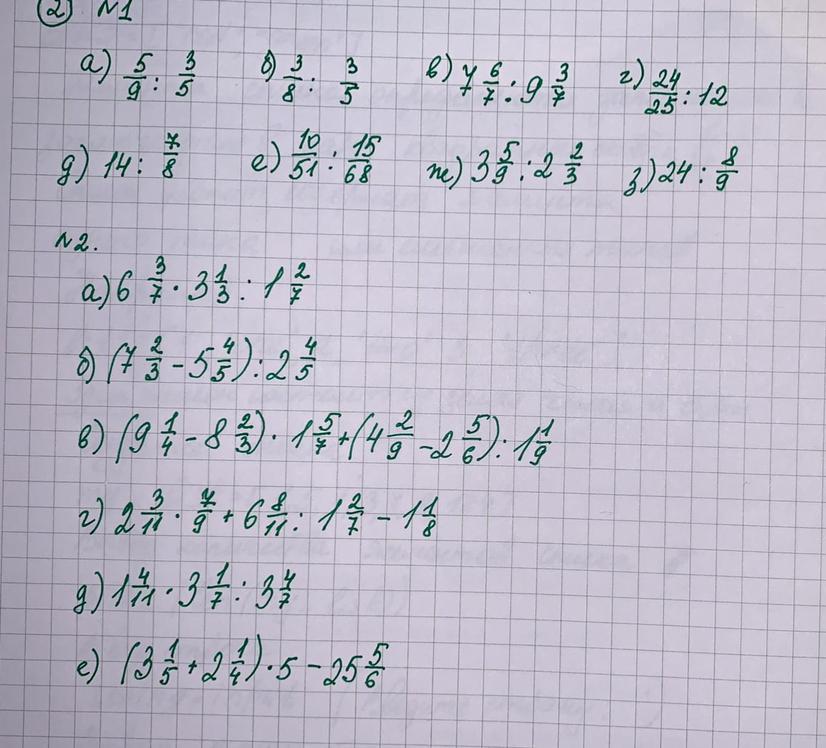 2) №1
а) 5/9 : 3/5 б) 3/8 : 3/5 в) 7 6/7 : 9 3/7 г) 24/25 : 12
д) 14 : 7/8 е) 10/51 : 15/68 ж) 3 5/9 : 2 2/3 з) 24 : 8/9
№2.
а) 6 3/7 · 3 1/3 : 1 2/7
б) (7 2/3 - 5 4/5) : 2 4/5
в) (9 1/4 - 8 2/3) · 1 5/7 + (4 2/9 - 2 5/6) : 1 1/9
г) 2 3/11 · 7/9 + 6 8/11 : 1 2/7 - 1 1/8
д) 1 4/11 · 3 1/7 : 3 4/7
е) (3 1/5 + 2 1/4) · 5 - 25 5/6